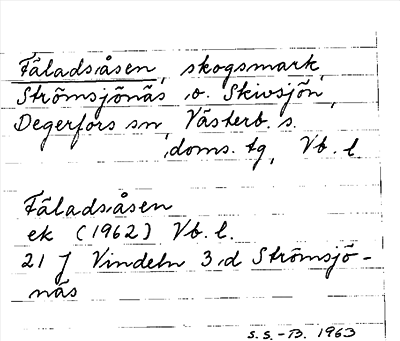 Fäladsåsen, skogsmark,
Strömsjönäs o. Skivsjön,
Degerfors sn, Västerb. s.
doms. tg, Vb. l.
Fäladsåsen
ek (1962) Vb. l.
21 J Vindeln 3 d Strömsjö-
näs
S.S.-B. 1963